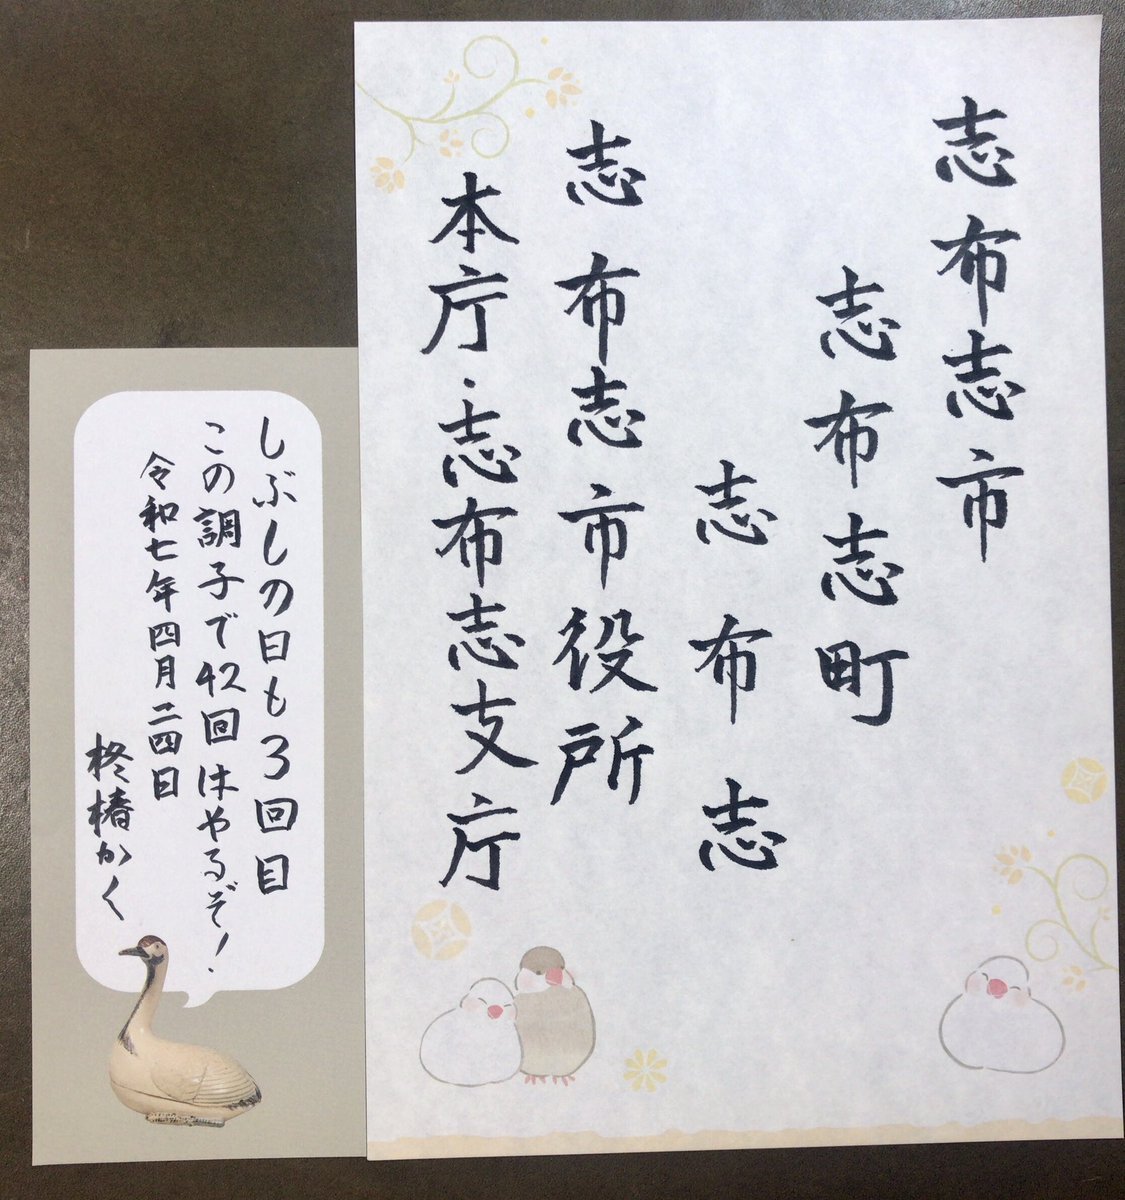 志布志市
志布志町
志布志
志布志市役所
本庁・志布志支庁
しぶしの日も3回目
この調子で42回はやるぞ！
令和七年四月二四日
柊椿かく